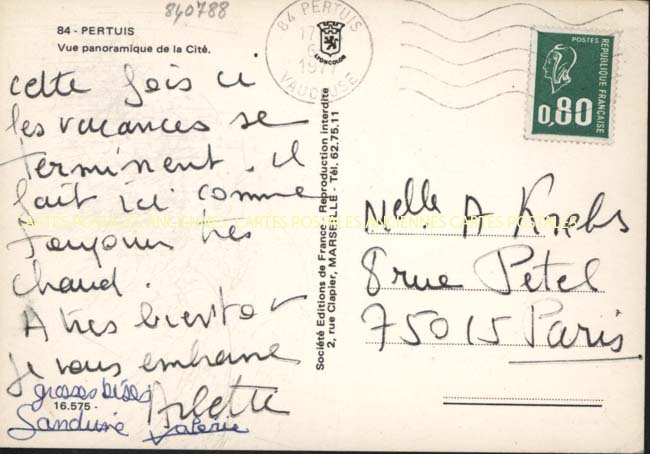 840788
84 - PERTUIS
Vue panoramique de la Cité.
84 PERTUIS
VAUCLUSE
1977
LIONCOLOR
POSTES
REPUBLIQUE FRANÇAISE
0,80
cette fois ci
les vacances se
terminent. il
fait ici comme
toujours très
chaud.
A très bientot
je vous embrasse
Arlette
grosses bises
Sandrine Valérie
16.575 -
Société Editions de France - Reproduction interdite
2, rue Clapier, MARSEILLE - Tél. 62.75.11
Melle A Krebs
8 rue Petel
75015 Paris
CARTES POSTALES ANCIENNES CARTES POSTALES ANCIENNES CARTES POSTALES ANCIENNES